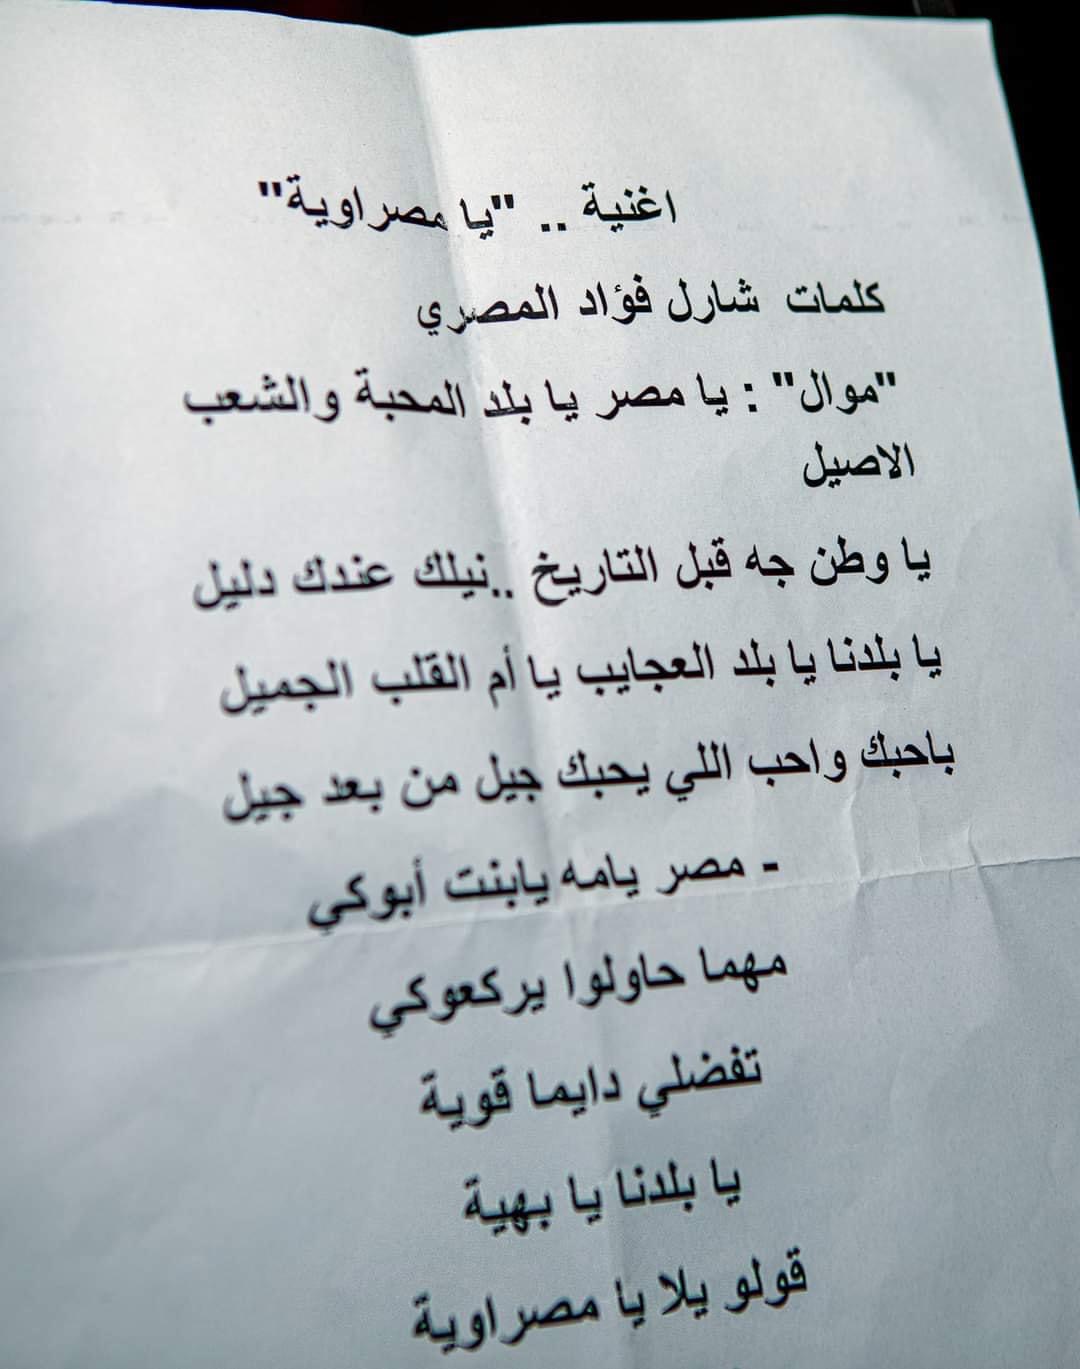 اغنية .. "يا مصراوية"
كلمات شارل فؤاد المصري
"موال" : يا مصر يا بلد المحبة والشعب
الاصيل
يا وطن جه قبل التاريخ ..نيلك عندك دليل
يا بلدنا يا بلد العجايب يا أم القلب الجميل
باحبك واحب اللي يحبك جيل من بعد جيل
- مصر يامه يابنت أبوكي
مهما حاولوا يركعوكي
تفضلي دايما قوية
يا بلدنا يا بهية
قولو يلا يا مصراوية